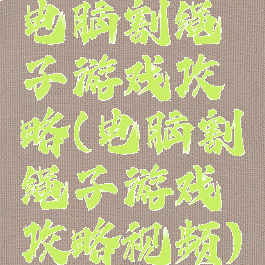 电脑割绳
子游戏攻
略(电脑割
绳子游戏
攻略视频)